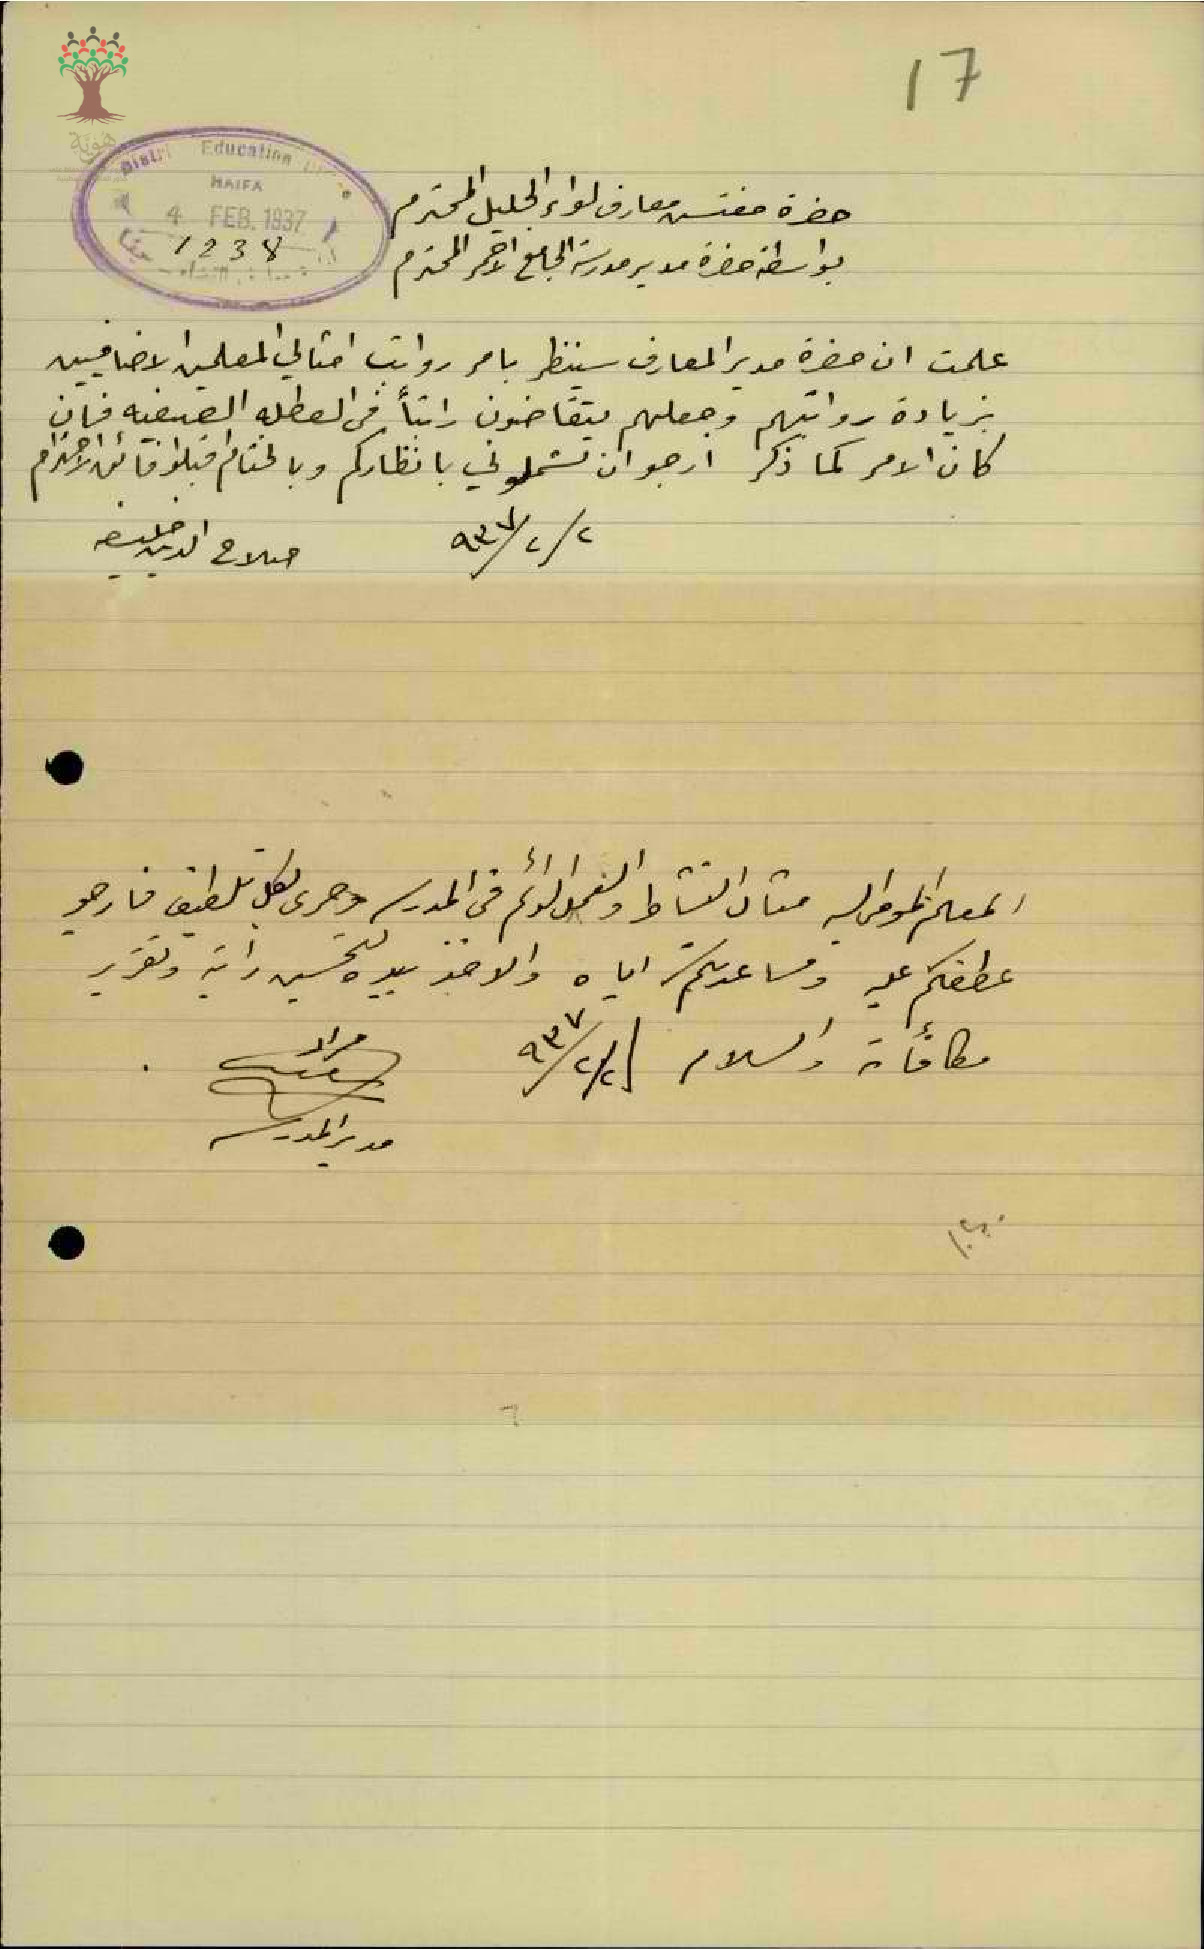 17
هوية
District Education Office
HAIFA
4 FEB. 1937
1238
حضرة مفتش معارف لواء الجليل المحترم
بواسطة حضرة مدير مدرسة الجامع الاحمر المحترم
علمت ان حضرة مدير المعارف سينظر بامر رواتب امثالي المعلمين الاضافيين
بزيادة رواتبهم وجعلهم يتقاضون راتباً في العطله الصيفيه فان
كان الامر كما ذكر ارجو ان تشملوني بانظاركم وبالختام اقبلوا فائق الاحترام
٢/٢/٩٣٧
صلاح الدين خليفه
المعلم المومى اليه مثال النشاط والعمل الدائم في المدرسه وحرى بكل تلطيف فارجو
عطفكم عليه ومساعدتكم اياه والاخذ بيده لتحسين راتبه وتقرير
مكافأته والسلام ٢/٢/٩٣٧
مراد
مدير المدرسه